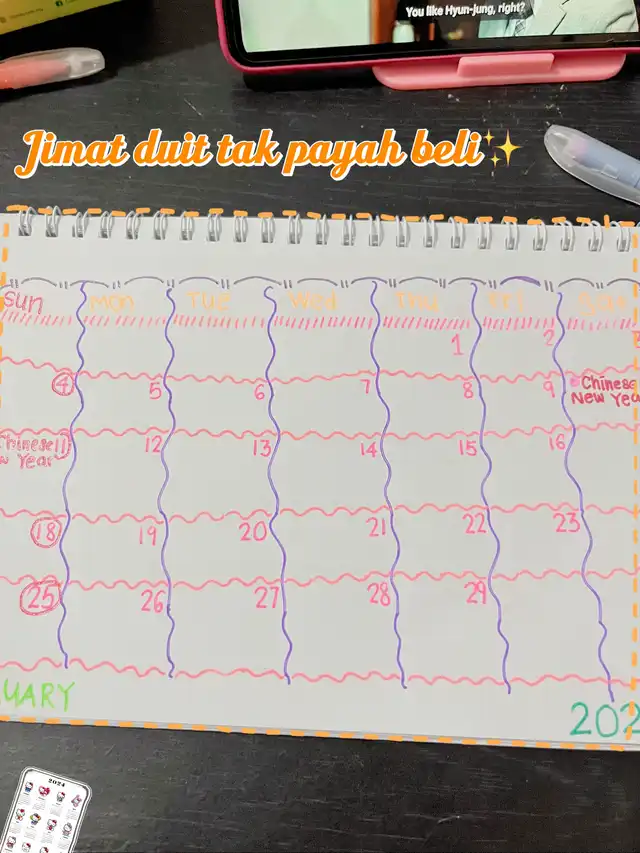 You like Hyun-jung, right?
Jimat duit tak payah beli
Sun Mon Tue Wed Thu Fri Sat
1 2
4 5 6 7 8 9 Chinese
New Yea
Chinese 11 12 13 14 15 16
w Year
18 19 20 21 22 23
25 26 27 28 29
UARY
202
2024